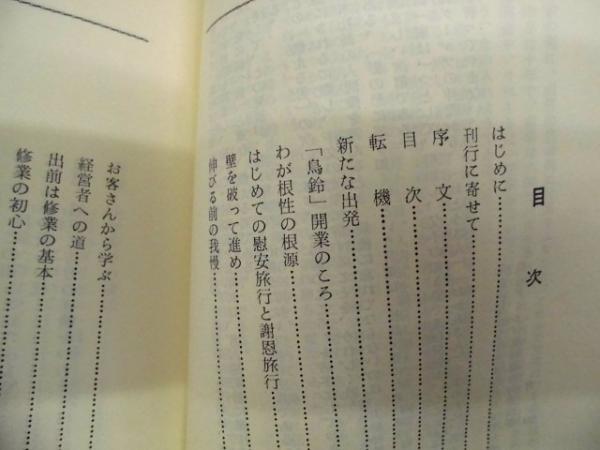 目次
はじめに
刊行に寄せて
序文
目次
転機
新たな出発
「鳥鈴」開業のころ
わが根性の根源
はじめての慰安旅行と謝恩旅行
壁を破って進め
伸びる前の我慢
お客さんから学ぶ
経営者への道
出前は修業の基本
修業の初心